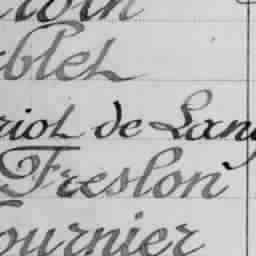 blet
riot de Lang
Freslon
ournier